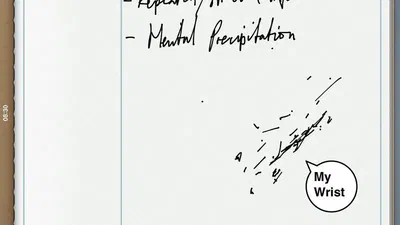 - Mental Precipitation
My
Wrist
08:30